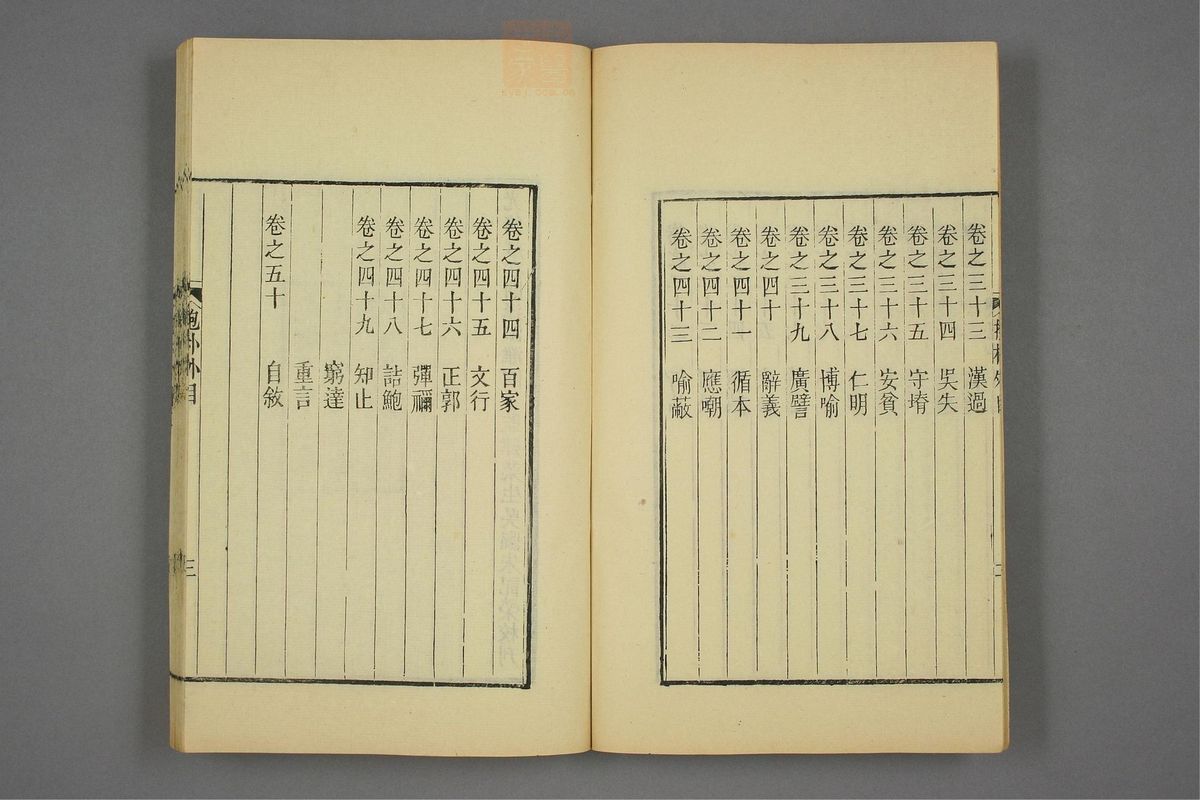 卷之三十三 漢過
卷之三十四 吳失
卷之三十五 守塉
卷之三十六 安貧
卷之三十七 仁明
卷之三十八 博喻
卷之三十九 廣譬
卷之四十 辭義
卷之四十一 循本
卷之四十二 應嘲
卷之四十三 喻蔽
卷之四十四 百家
卷之四十五 文行
卷之四十六 正郭
卷之四十七 彈禰
卷之四十八 詰鮑
卷之四十九 知止
窮達
重言
卷之五十 自敘
抱朴外目
三